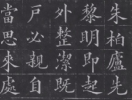 朱柏廬先
黎明即起
外整潔既
戶必親自
當思來處